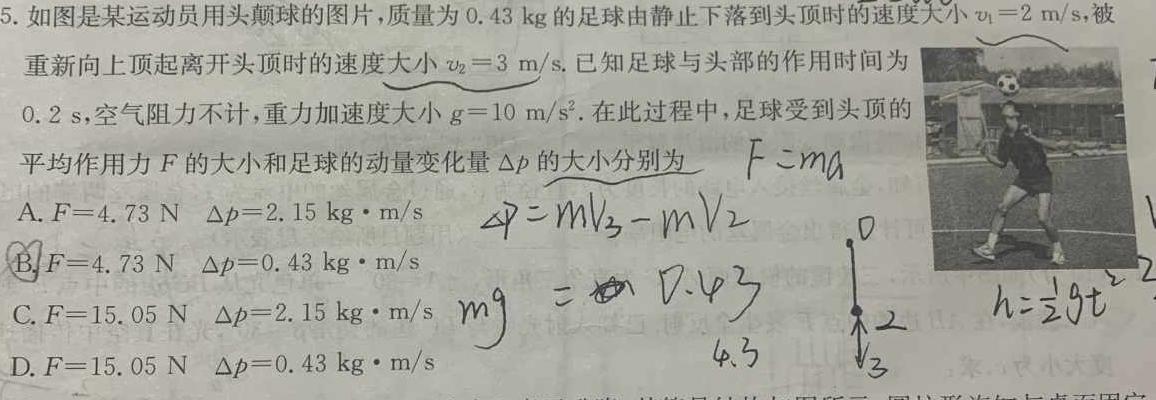 5. 如图是某运动员用头颠球的图片,质量为 0.43 kg 的足球由静止下落到头顶时的速度大小 v₁=2 m/s,被
重新向上顶起离开头顶时的速度大小 v₂=3 m/s. 已知足球与头部的作用时间为
0.2 s,空气阻力不计,重力加速度大小 g=10 m/s². 在此过程中,足球受到头顶的
平均作用力 F 的大小和足球的动量变化量 Δp 的大小分别为
F=ma
A. F=4.73 N Δp=2.15 kg·m/s
ΔP=mV₃-mV₂
B. F=4.73 N Δp=0.43 kg·m/s
C. F=15.05 N Δp=2.15 kg·m/s
mg
= 0.43
4.3
D. F=15.05 N Δp=0.43 kg·m/s
0
2
3
h=½gt²